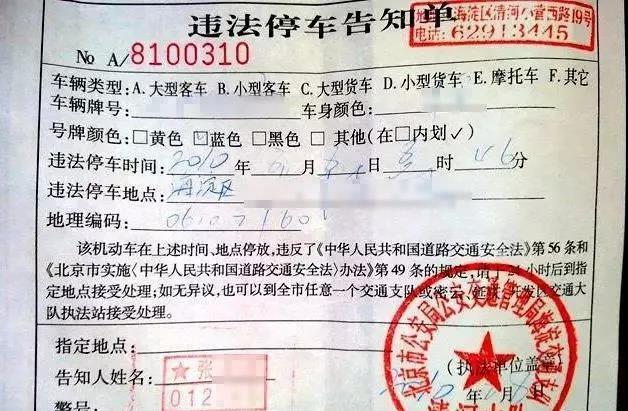 违法停车告知单
海淀区清河小营西路19号
电话: 62913445
No A/8100310
车辆类型: A.大型客车 B.小型客车 C.大型货车 D.小型货车 E.摩托车 F.其它
车辆牌号: 车身颜色:
号牌颜色: □黄色 ☑蓝色 □黑色 其他(在□内划✓)
违法停车时间: 2010年 月 日 时46分
违法停车地点: 海淀区
地理编码:
该机动车在上述时间、地点停放,违反了《中华人民共和国道路交通安全法》第56条和
《北京市实施〈中华人民共和国道路交通安全法〉办法》第49条的规定,请于24小时后到指
定地点接受处理;如无异议,也可以到全市任意一个交通支队或密云、延庆、开发区交通大
队执法站接受处理。
指定地点:
(执法单位盖章)
告知人姓名: 张
2010年 月 日
012
警号:
北京市公安局公安交通管理局海淀交通支队